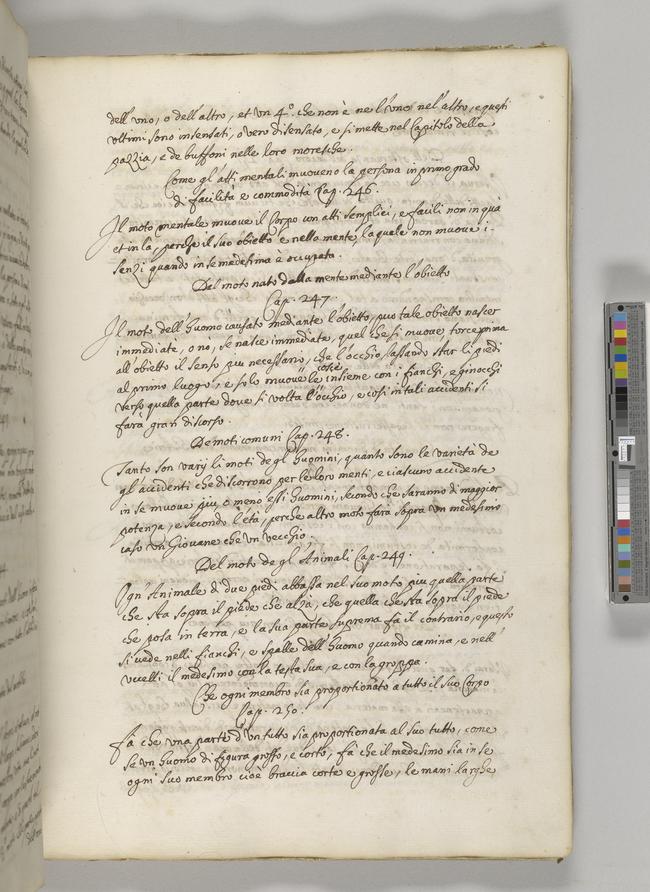 dell'uno, o dell'altro, et un 4.° che non è ne l'uno nel'altro, e questi
ultimi sono insensati, overo disensato, e si mette nel Capitolo della
pazzia, e de buffoni nelle loro moresche.
Come gl'atti mentali muoveno la persona in primo grado
di facilità e commodità Cap. 246.
Il moto mentale muove il Corpo con atti semplici, e facili non in qua
et in la, perche il suo obietto è nella mente, la quale non muove i-
sensi quando in se medesima è occupata.
Del moto nato dalla mente mediante l'obietto
Cap. 247.
Il moto dell'huomo causato mediante l'obietto, può tale obietto nascer
immediate, o no, se nasce immediate, quel che si muove torce prima
all'obietto il senso più necessario, che l'occhio, lassando star li piedi
al primo luogo, e solo muove le cosce insieme con i fianchi, e ginocchi
verso quella parte dove si volta l'occhio, e così in tali accidenti si
farà gran discorso.
De moti comuni Cap. 248.
Tanto son varij li moti degl'huomini, quanto sono le varietà de
gl'accidenti che discorrono per le loro menti, e ciascuno accidente
in se muove più, o meno essi huomini, secondo che saranno di maggior
potenza, e secondo l'età, perche altro moto farà sopra un medesimo
caso un Giovane che un vecchio.
Del moto de gl'Animali Cap. 249.
Ogn'Animale di due piedi abbassa nel suo moto più quella parte
che sta sopra il piede che alza, che quella che sta sopra il piede
che posa in terra, e la sua parte suprema fa il contrario, e questo
si vede nelli fianchi, e spalle dell'huomo quando camina, e nell'
uccelli il medesimo con la testa sua, e con la groppa.
Che ogni membro sia proportionato a tutto il suo Corpo
Cap. 250.
Fà che una parte d'un tutto sia proportionata al suo tutto, come
se un huomo di figura grosso, e corto, fà che il medesimo sia in se
ogni suo membro cioe braccia corte e grosse, le mani larghe